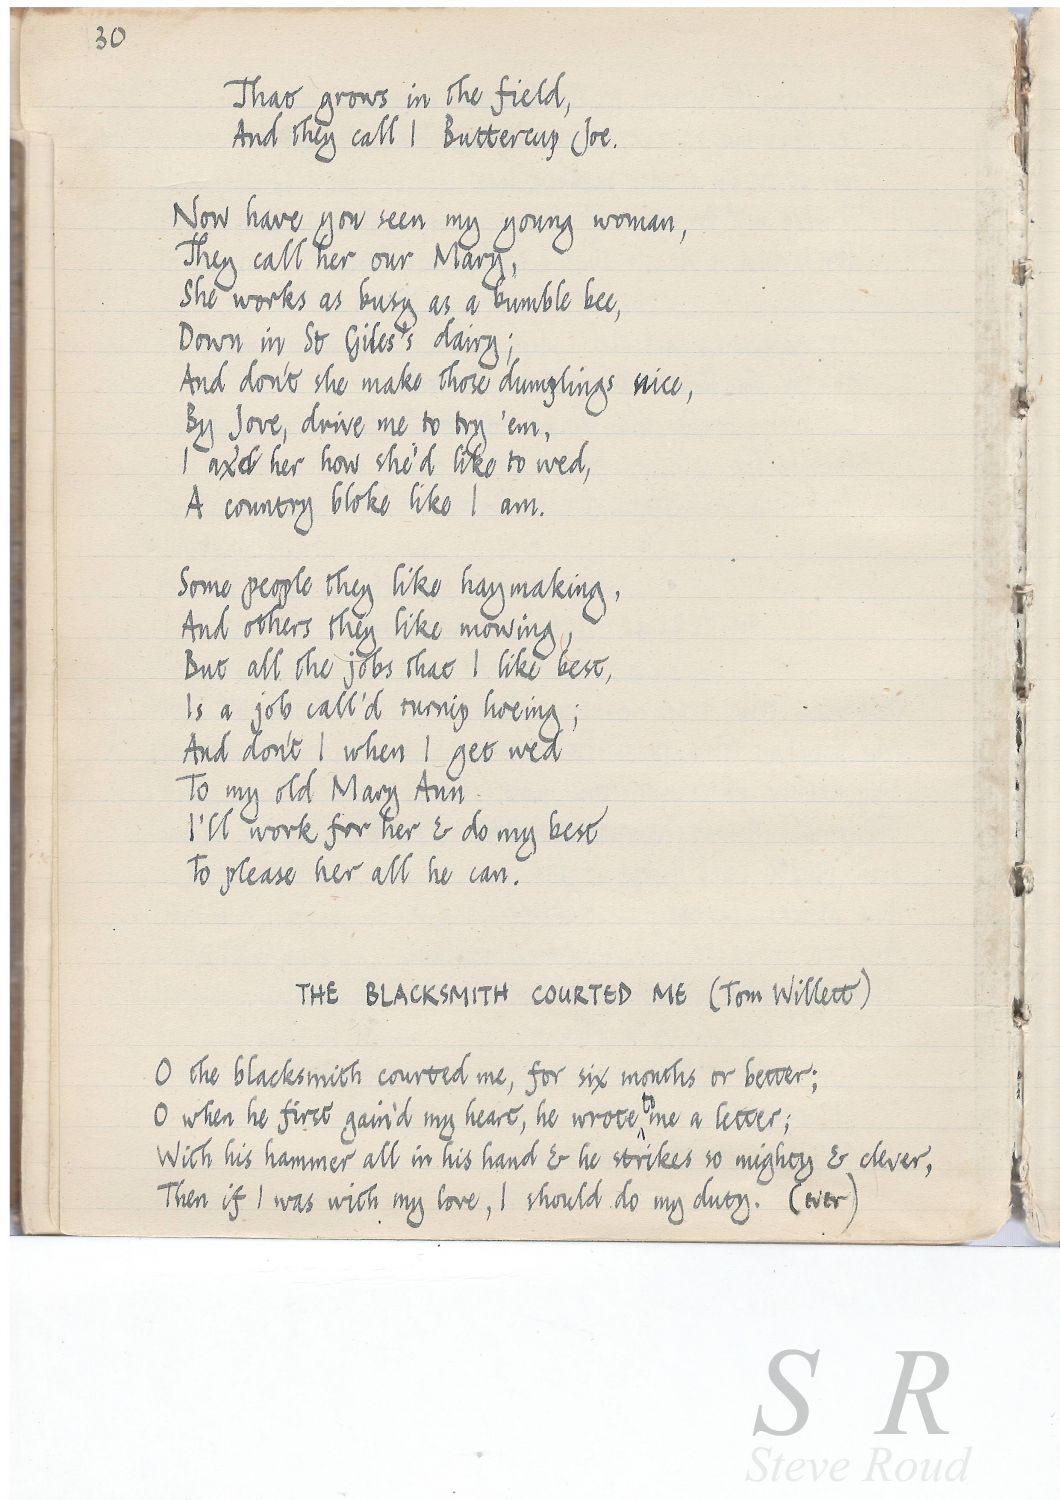 30
That grows in the field,
And they call I Buttercup Joe.
Now have you seen my young woman,
They call her our Mary,
She works as busy as a bumble bee,
Down in St Giles's dairy;
And don't she make those dumplings nice,
By Jove, drive me to try 'em,
I ax'd her how she'd like to wed,
A country bloke like I am.
Some people they like haymaking,
And others they like mowing,
But all the jobs that I like best,
Is a job call'd turnip hoeing;
And don't I when I get wed
To my old Mary Ann
I'll work for her & do my best
To please her all he can.
THE BLACKSMITH COURTED ME (Tom Willett)
O the blacksmith courted me, for six months or better;
O when he first gain'd my heart, he wrote to me a letter;
With his hammer all in his hand & he strikes so mighty & clever,
Then if I was with my love, I should do my duty. (ever)
S R
Steve Roud